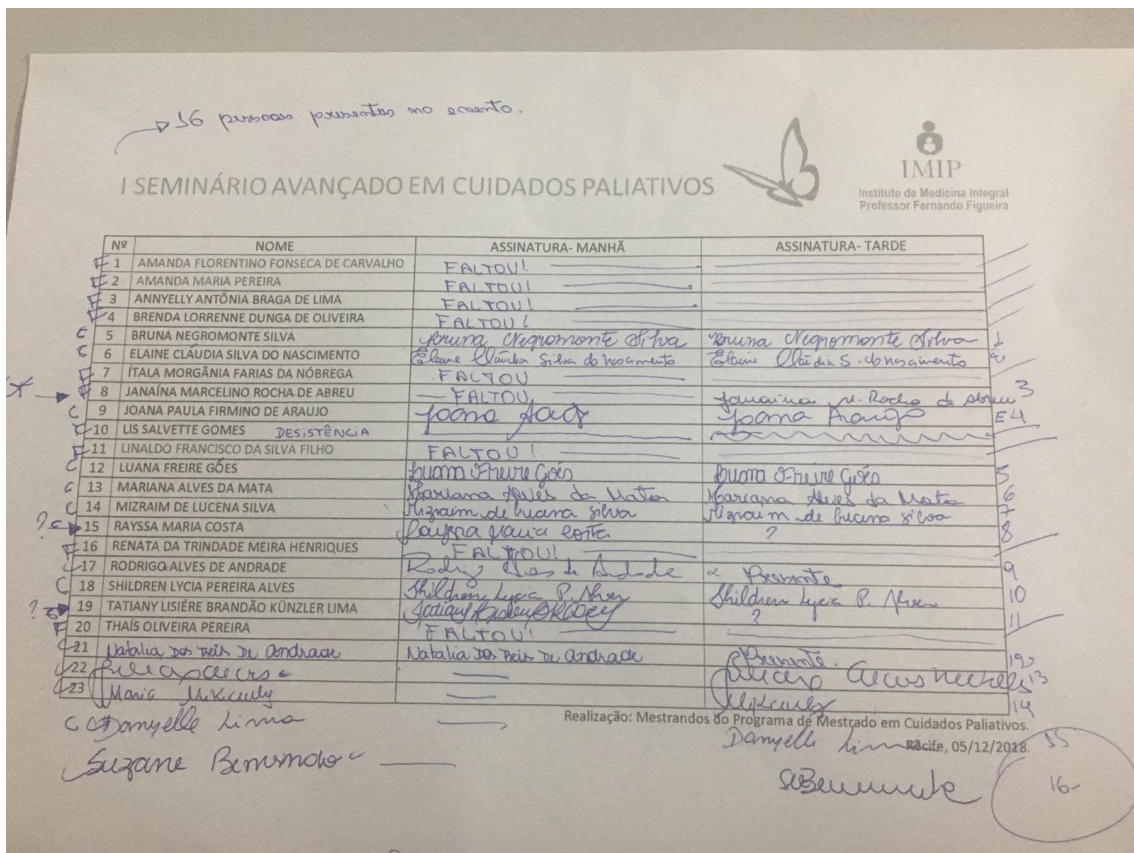 16 pessoas presentes no evento.
I SEMINÁRIO AVANÇADO EM CUIDADOS PALIATIVOS
IMIP
Instituto de Medicina Integral
Professor Fernando Figueira
Nº NOME ASSINATURA- MANHÃ ASSINATURA- TARDE
F 1 AMANDA FLORENTINO FONSECA DE CARVALHO FALTOU!
F 2 AMANDA MARIA PEREIRA FALTOU!
F 3 ANNYELLY ANTÔNIA BRAGA DE LIMA FALTOU!
F 4 BRENDA LORRENNE DUNGA DE OLIVEIRA FALTOU!
C 5 BRUNA NEGROMONTE SILVA Bruna Negromonte Silva Bruna Negromonte Silva 1
C 6 ELAINE CLÁUDIA SILVA DO NASCIMENTO Elaine Cláudia Silva do nascimento Elaine Cláudia S. do nascimento 2
F 7 ÍTALA MORGÂNIA FARIAS DA NÓBREGA FALTOU
8 JANAÍNA MARCELINO ROCHA DE ABREU FALTOU Janaina M. Rocha de Abreu 3
C 9 JOANA PAULA FIRMINO DE ARAUJO Joana Joana Araujo 4
F 10 LIS SALVETTE GOMES DESISTÊNCIA
F 11 LINALDO FRANCISCO DA SILVA FILHO FALTOU!
C 12 LUANA FREIRE GÓES Luana Freire Góes Luana Freire Góes 5
C 13 MARIANA ALVES DA MATA Mariana Alves da Mata Mariana Alves da Mata 6
C 14 MIZRAIM DE LUCENA SILVA Mizraim de lucena silva Mizraim de lucena silva 7
? C 15 RAYSSA MARIA COSTA Rayssa Maria Costa ? 8
F 16 RENATA DA TRINDADE MEIRA HENRIQUES FALTOU!
C 17 RODRIGO ALVES DE ANDRADE Rodrigo Alves de Andrade Presente 9
C 18 SHILDREN LYCIA PEREIRA ALVES Shildren Lycia P. Alves Shildren Lycia P. Alves 10
? 19 TATIANY LISIÉRE BRANDÃO KÜNZLER LIMA Tatiany ? 11
F 20 THAÍS OLIVEIRA PEREIRA FALTOU!
C 21 Natalia Dos Reis De Andrade Natalia Dos Reis De Andrade Presente. 12
C 22 13
C 23 Maria Mikaely Mikaely 14
C Danyelle Lima Danyelle Lima 15
Realização: Mestrandos do Programa de Mestrado em Cuidados Paliativos.
Recife, 05/12/2018.
Suzane 16